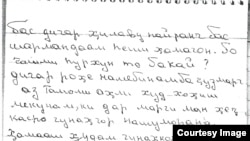 бас дигар ҳилаву найранг бас
шармандаам пеши ҳамагон. Бо
чашми пурхун то бакай?
дигар роҳе намебинам ба ҷуз марг
аз тамоми аҳли худ хоҳиш
мекунам, ки дар марги ман ҳеҷ
касро гунаҳгор нашуморанд.
Ҳамааш худам гунаҳкор
Courtesy Image